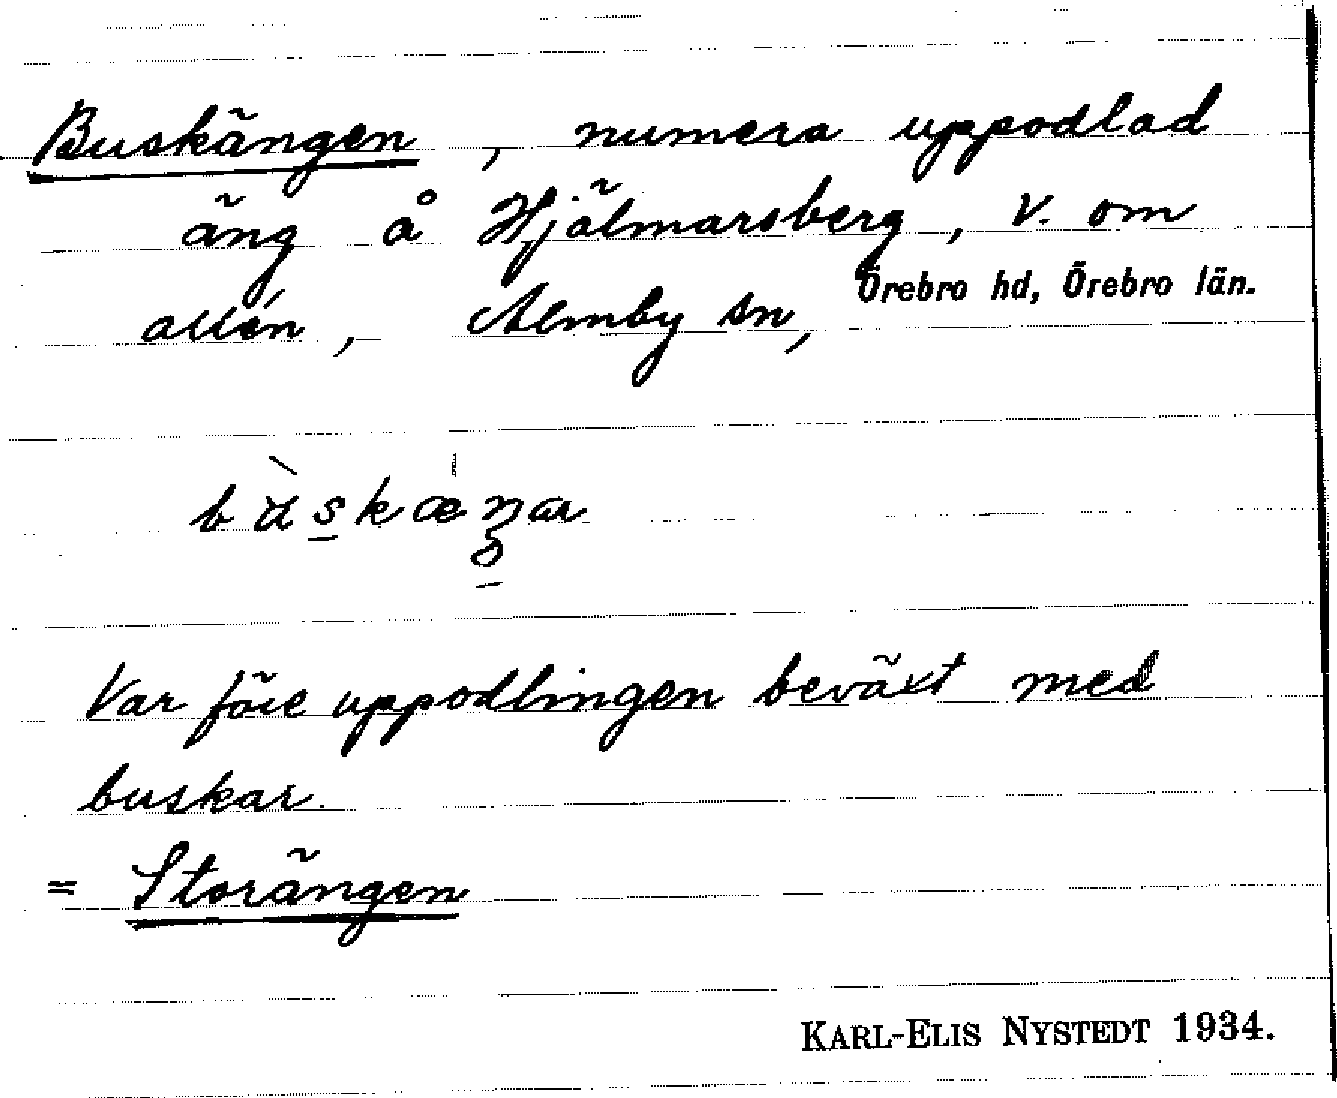 Buskängen, numera uppodlad
äng å Hjälmarsberg, V. om
allén, Almby sn, Örebro hd, Örebro län.
Var före uppodlingen beväxt med
buskar.
= Storängen
KARL-ELIS NYSTEDT 1934.